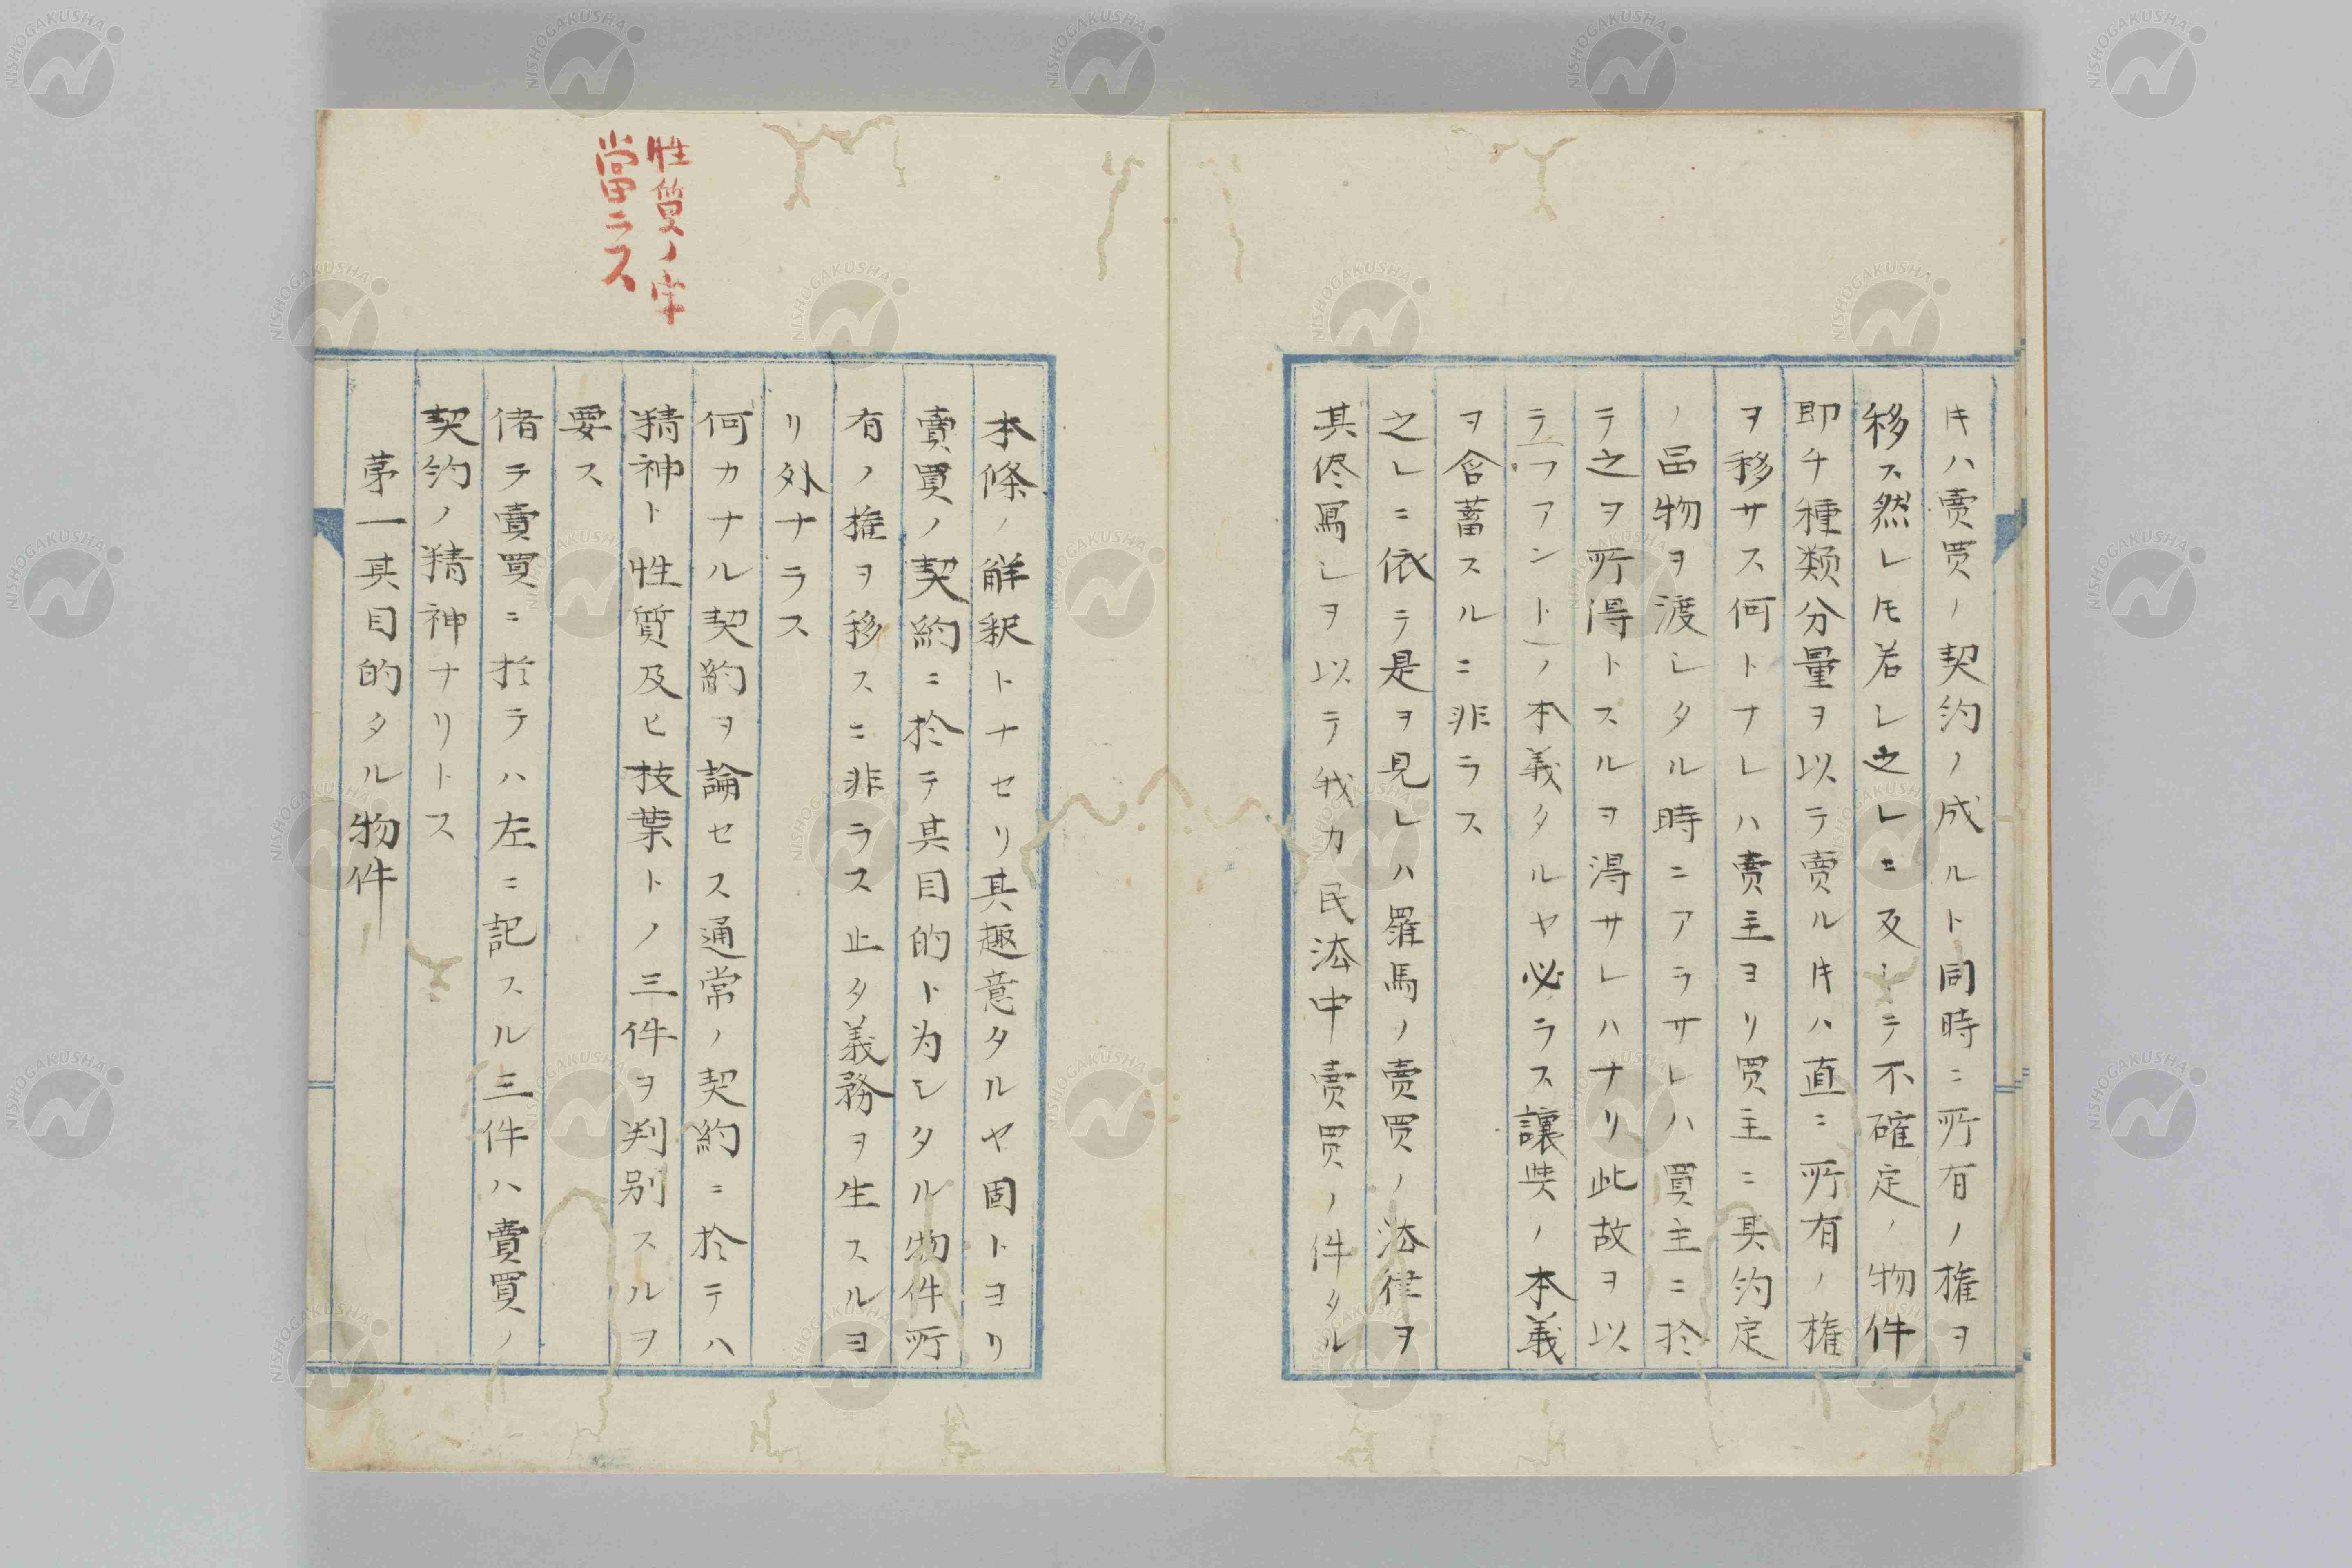 キハ賣買ノ契約ノ成ルト同時ニ所有ノ権ヲ
移ス然レ𪜈若シ之レニ反シテ不確定ノ物件
即チ種類分量ヲ以テ賣ルキハ直ニ所有ノ権
ヲ移サス何トナレハ賣主ヨリ買主ニ其約定
ノ品物ヲ渡シタル時ニアラサレハ買主ニ於
テ之ヲ所得トスルヲ得サレハナリ此故ヲ以
テ「ワアント」ノ本義タルヤ必ラス讓與ノ本義
ヲ含蓄スルニ非ラス
之レニ依テ是ヲ見レハ羅馬ノ賣買ノ法律ヲ
其侭寫シヲ以テ我カ民法中賣買ノ件タル
性質ノ字
當ラス
本條ノ解釈トナセリ其趣意タルヤ固トヨリ
賣買ノ契約ニ於テ其目的ト为シタル物件所
有ノ権ヲ移スニ非ラス止タ義務ヲ生スルヨ
リ外ナラス
何カナル契約ヲ論セス通常ノ契約ニ於テハ
精神ト性質及ヒ枝葉トノ三件ヲ判别スルヲ
要ス
偖テ賣買ニ於テハ左ニ記スル三件ハ賣買ノ
契約ノ精神ナリトス
苐一其目的タル物件
NISHOGAKUSHA